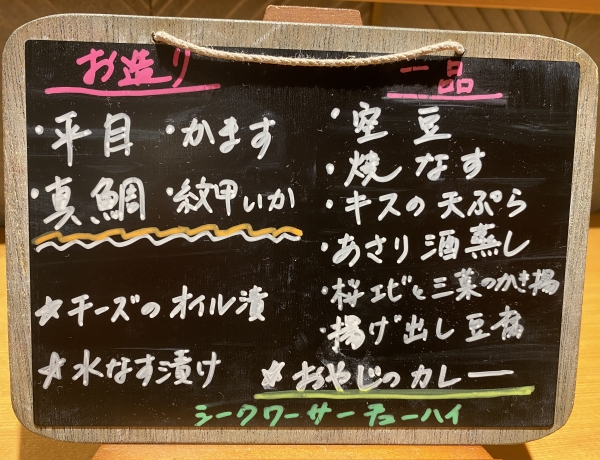 お造り
・平目 ・かます
・真鯛 ・紋甲いか
☆チーズのオイル漬
☆水なす漬け
一品
・空豆
・焼なす
・キスの天ぷら
・あさり酒蒸し
・桜エビと三菜のかき揚
・揚げ出し豆腐
☆おやじのカレー
シークワーサーチューハイ